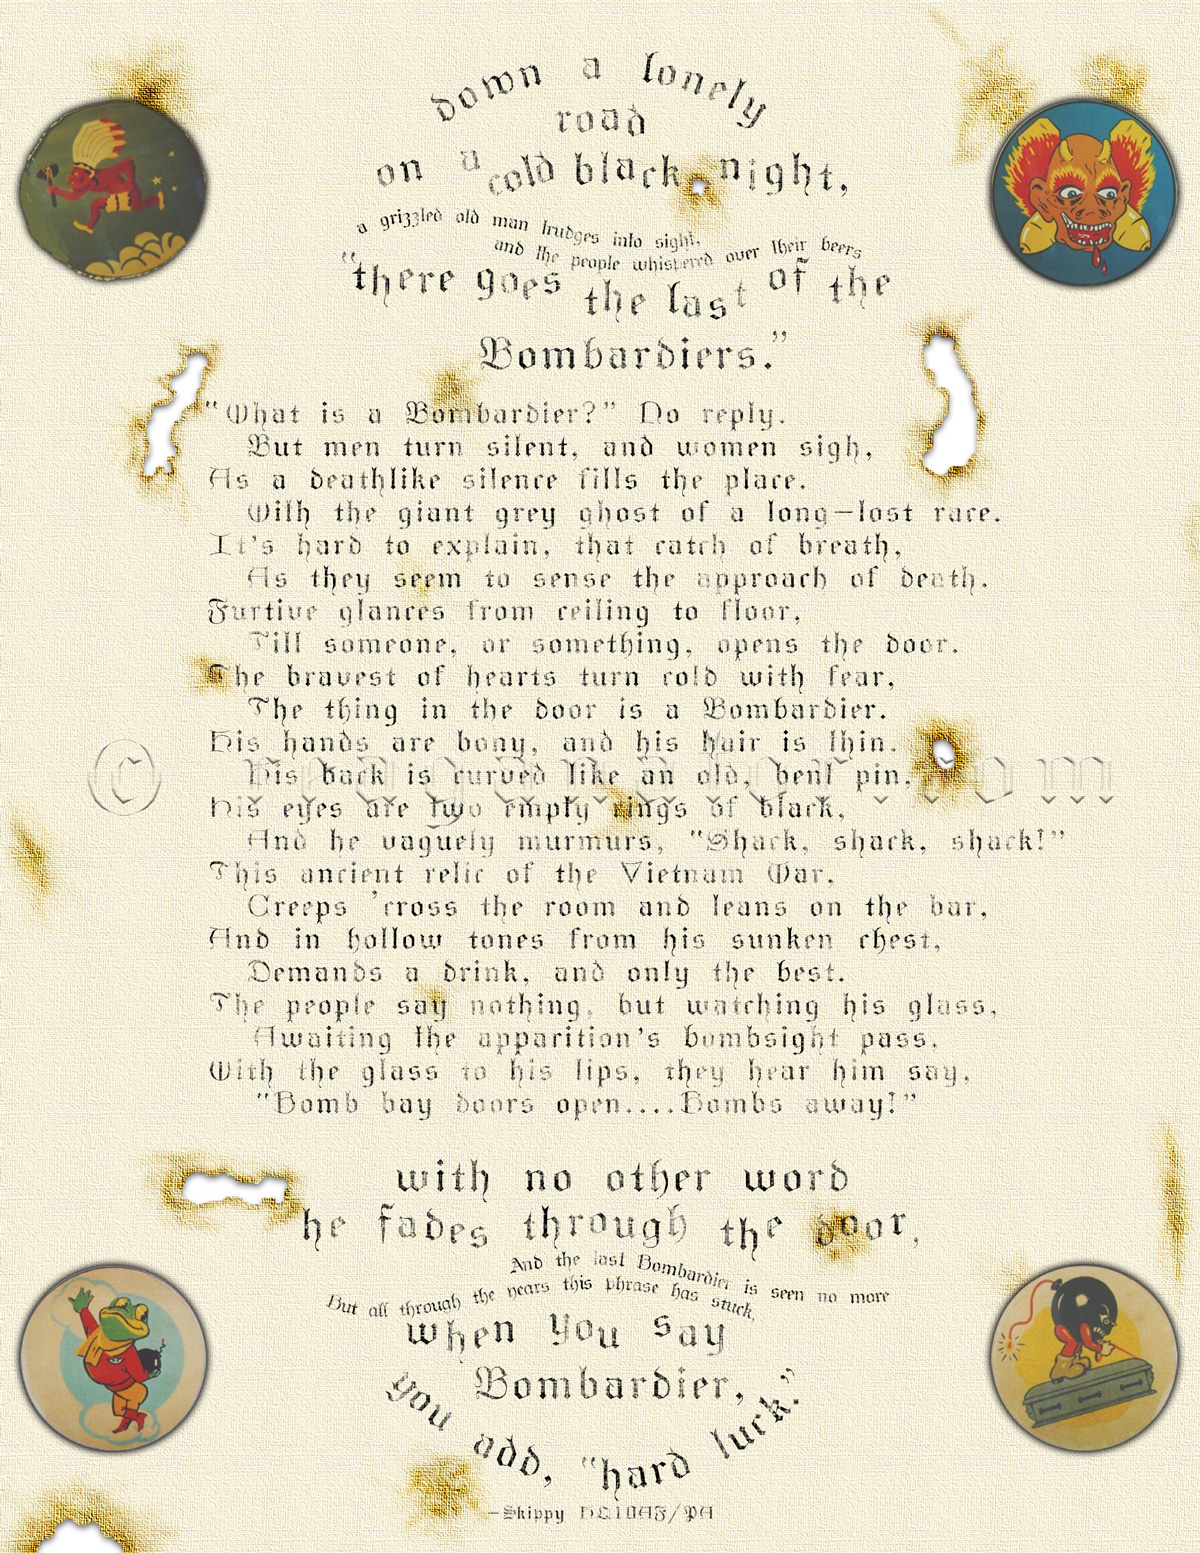 down a lonely
road
on a cold black night,
a grizzled old man trudges into sight,
and the people whispered over their beers
"there goes the last of the
Bombardiers."
"What is a Bombardier?" No reply.
But men turn silent, and women sigh,
As a deathlike silence fills the place.
With the giant grey ghost of a long-lost race.
It's hard to explain, that catch of breath,
As they seem to sense the approach of death.
Furtive glances from ceiling to floor,
Till someone, or something, opens the door.
The bravest of hearts turn cold with fear,
The thing in the door is a Bombardier.
His hands are bony, and his hair is thin.
His back is curved like an old, bent pin,
His eyes are two empty rings of black,
And he vaguely murmurs, "Shack, shack, shack!"
This ancient relic of the Vietnam War,
Creeps 'cross the room and leans on the bar,
And in hollow tones from his sunken chest,
Demands a drink, and only the best.
The people say nothing, but watching his glass,
Awaiting the apparition's bombsight pass,
With the glass to his lips, they hear him say,
"Bomb bay doors open....Bombs away!"
with no other word
he fades through the door,
And the last Bombardier is seen no more
But all through the years this phrase has stuck,
when you say
Bombardier,
you add, "hard luck."
-Skippy HQ10AF/PA